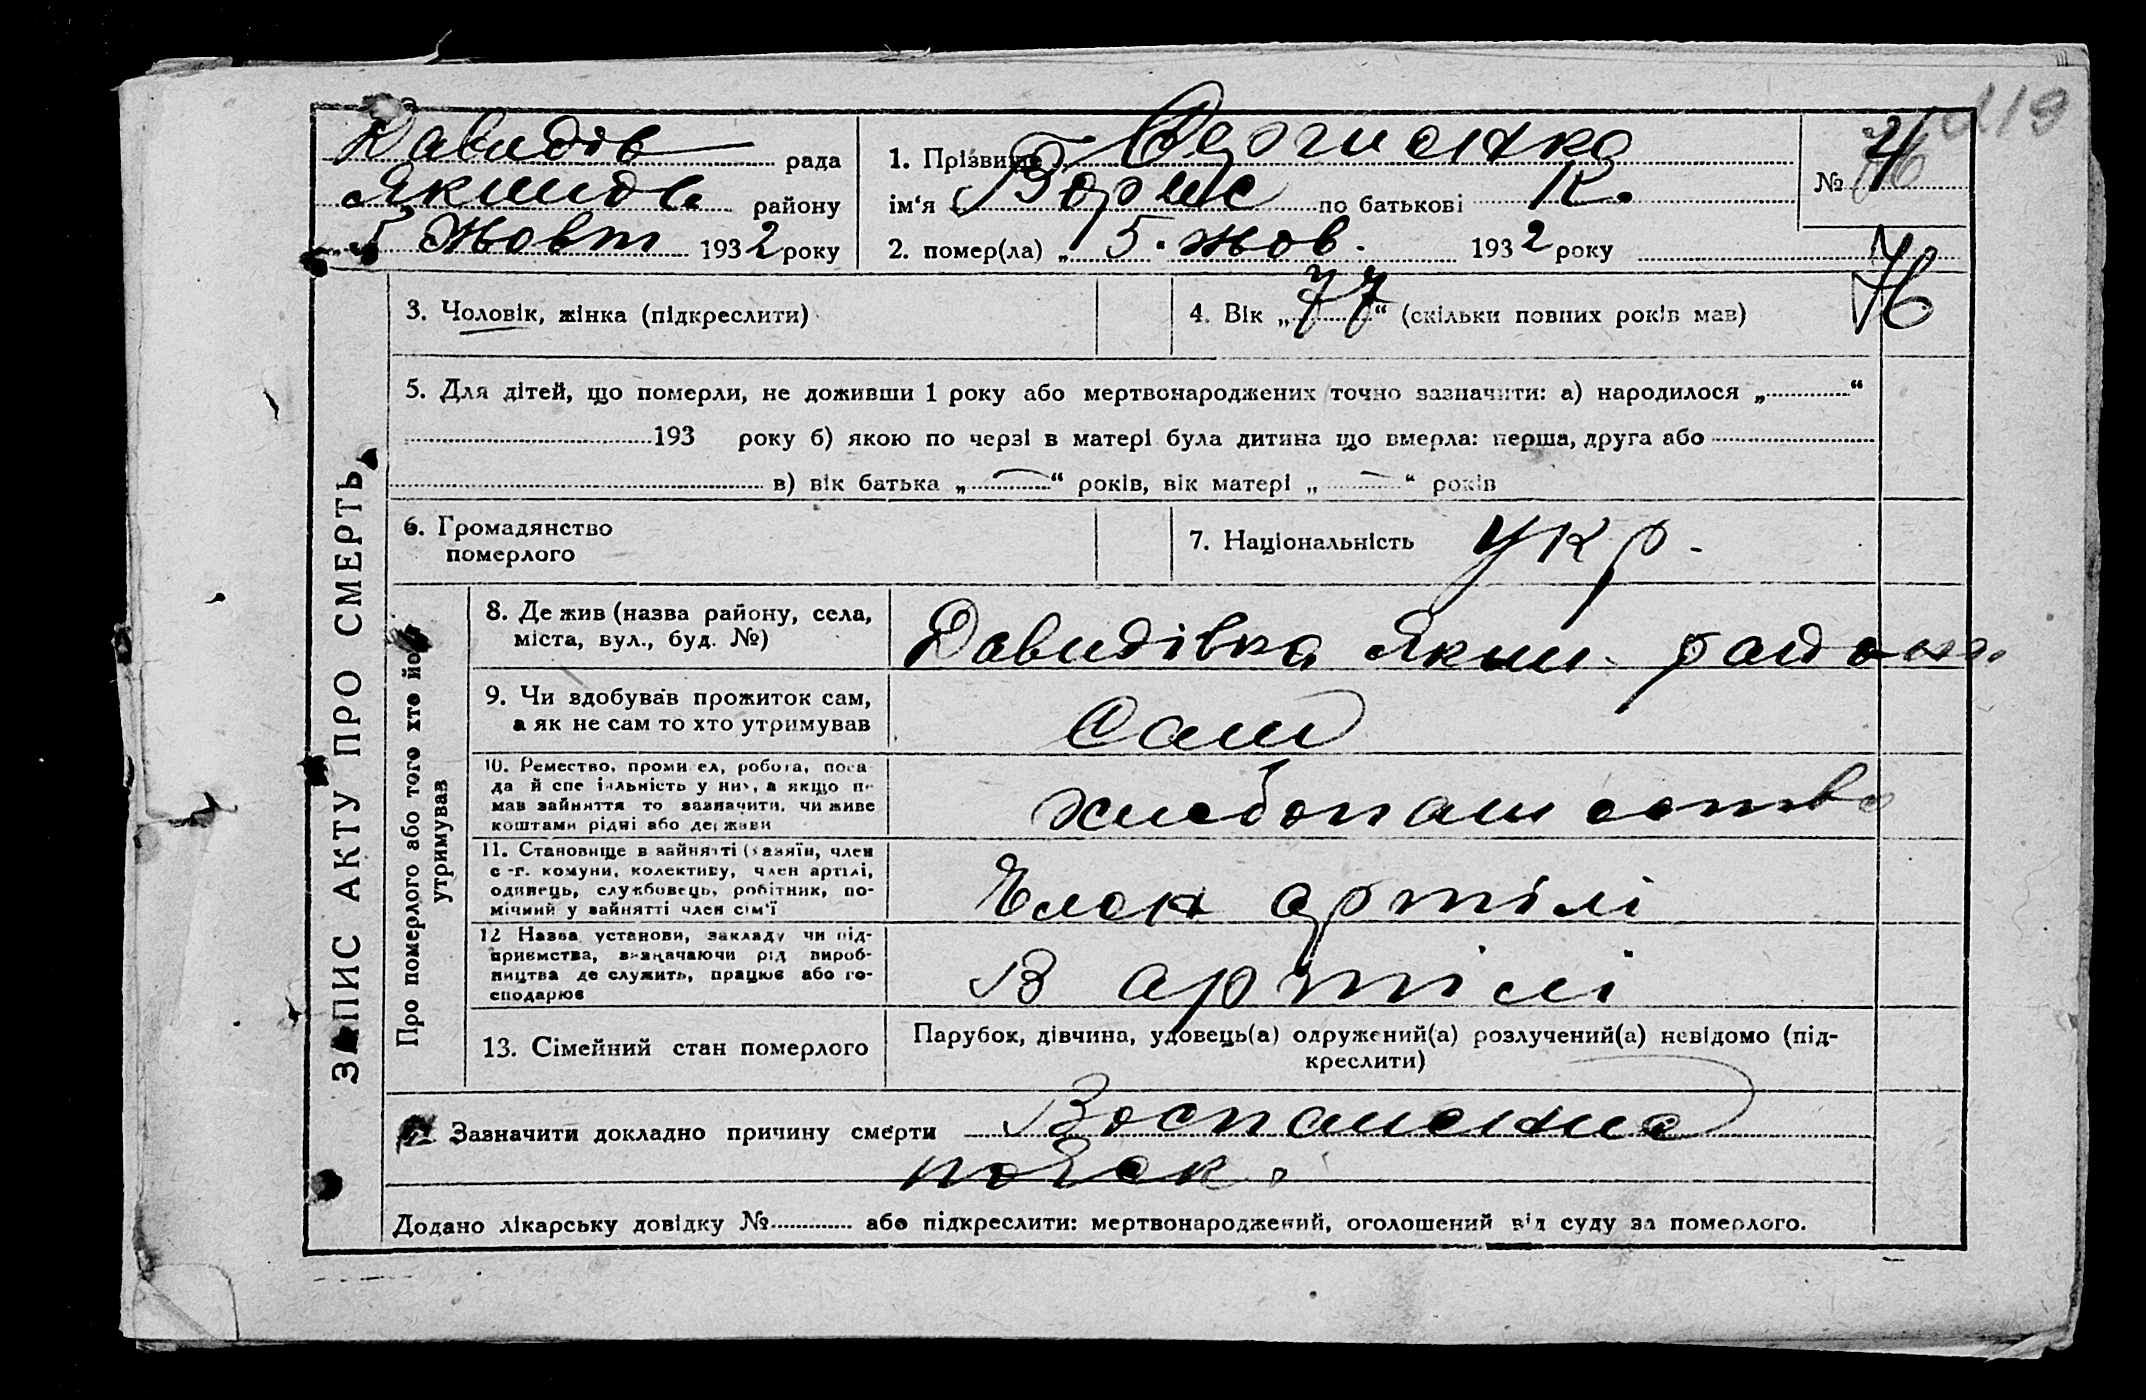 119
Давидів рада
Якимів району
5 Жовт 1932 року
1. Прізвище
ім'я Борис по батькові К.
2. помер(ла) „ 5. жов. 1932 року
№ 4
76
ЗАПИС АКТУ ПРО СМЕРТЬ
3. Чоловік, жінка (підкреслити)
4. Вік „77“ (скільки повних років мав)
5. Для дітей, що померли, не доживши 1 року або мертвонароджених точно зазначити: а) народилося „ “
193 року б) якою по черзі в матері була дитина що вмерла: перша, друга або
в) вік батька „ “ років, вік матері „ “ років
6. Громадянство
померлого
7. Національність укр.
Про померлого або того хто його
утримував
8. Де жив (назва району, села,
міста, вул., буд. №)
Давидівка Яким. района
9. Чи здобував прожиток сам,
а як не сам то хто утримував
Сам
10. Ремество, промисел, робота, поса-
да й спеціальність у них, а якщо не
мав зайняття то зазначити, чи живе
коштами рідні або держави
хлебопашество
11. Становище в зайнятті (хазяїн, член
с.-г. комуни, колективу, член артілі,
одинець, службовець, робітник, по-
мічний у зайнятті член сім'ї
Член артілі
12 Назва установи, закладу чи під-
приємства, визначаючи рід вироб-
ництва де служить, працює або го-
сподарює
В артілі
13. Сімейний стан померлого
Парубок, дівчина, удовець(а) одружений(а) розлучений(а) невідомо (під-
креслити)
Зазначити докладно причину смерти Воспаление
почек.
Додано лікарську довідку № або підкреслити: мертвонароджений, оголошений від суду за померлого.